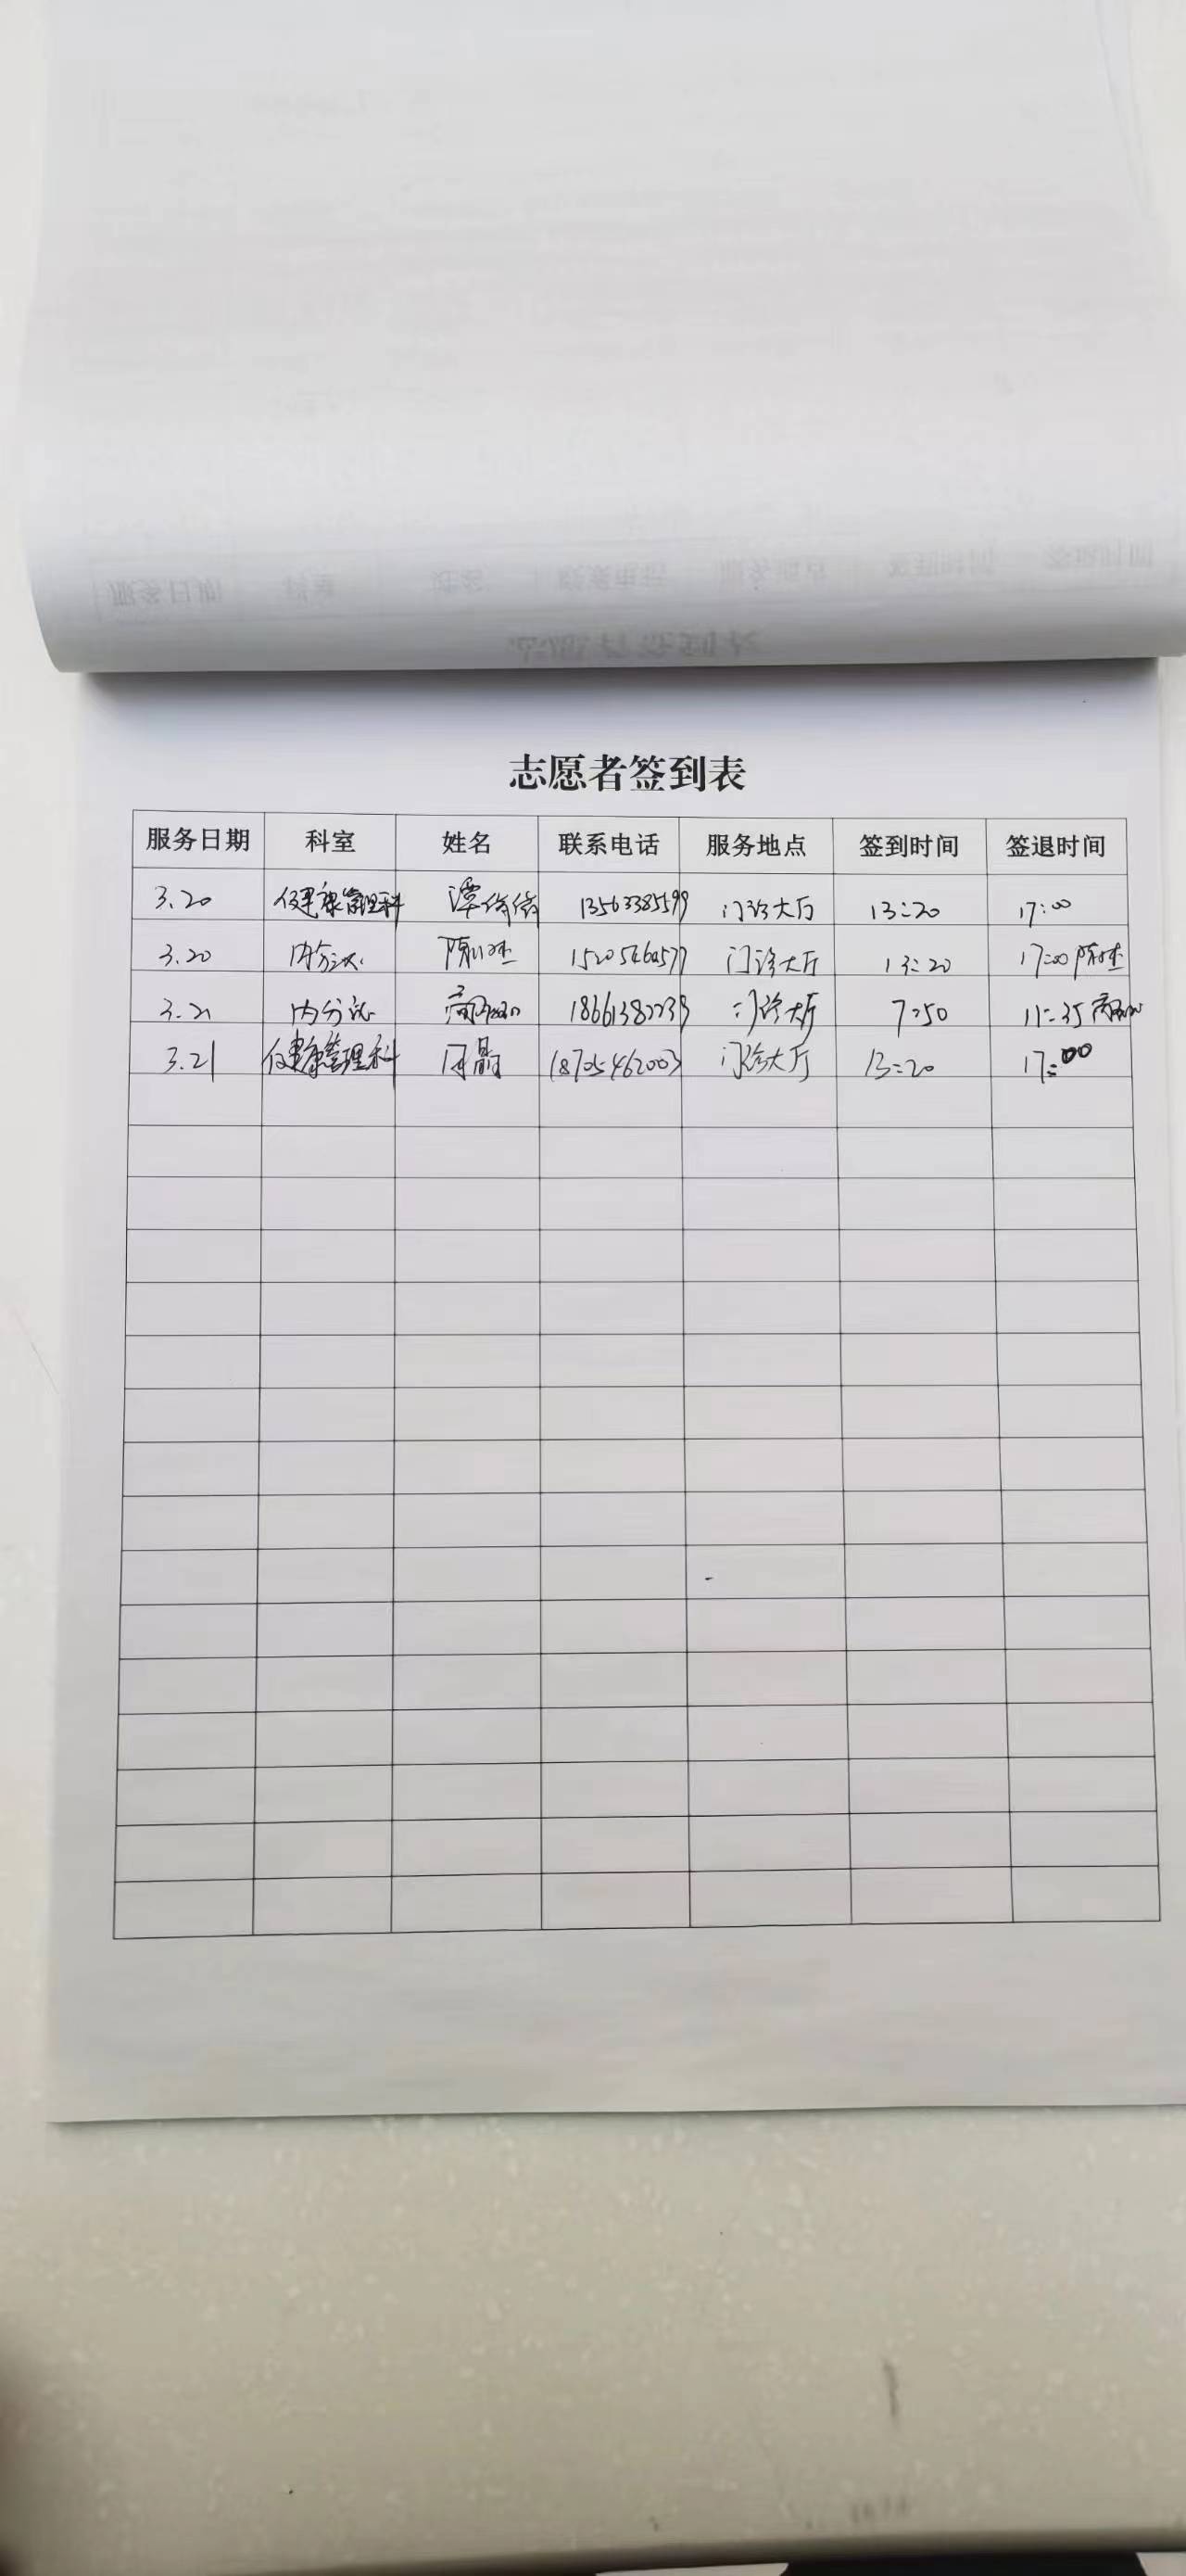 志愿者签到表
服务日期 科室 姓名 联系电话 服务地点 签到时间 签退时间
3.20 健康管理科 谭 13563385599 门诊大厅 13:20 17:00
3.20 内分泌 陈 门诊大厅 13:20 17:00 陈
3.21 内分泌 门诊大厅 7:50 11:35
3.21 健康管理科 晶 18705462003 门诊大厅 13:20 17:00